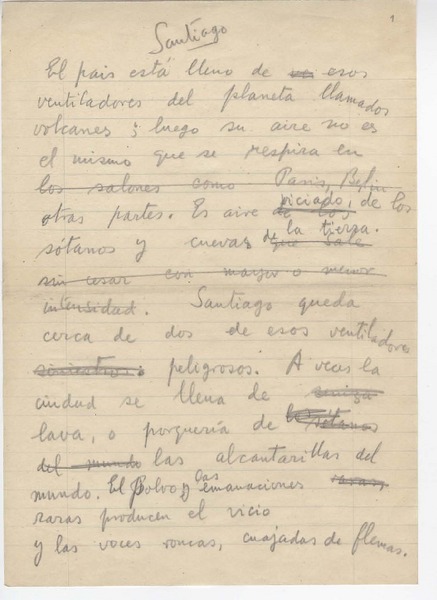 1
Santiago
El pais está lleno de esos
ventiladores del planeta llamados
volcanes; luego su aire no es
el mismo que se respira en
los salones como Paris, Berlin
otras partes. Es aire de los viciado, de los
sótanos y cuevas que sale de la tierra.
sin cesar con mayor o menor
intensidad. Santiago queda
cerca de dos de esos ventiladores
siniestros peligrosos. A veces la
ciudad se llena de ceniza
lava, o porqueria de los sótanos
del mundo las alcantarillas del
mundo. El polvo y las emanaciones raras,
raras producen el vicio
y las voces roncas, cuajadas de flemas.